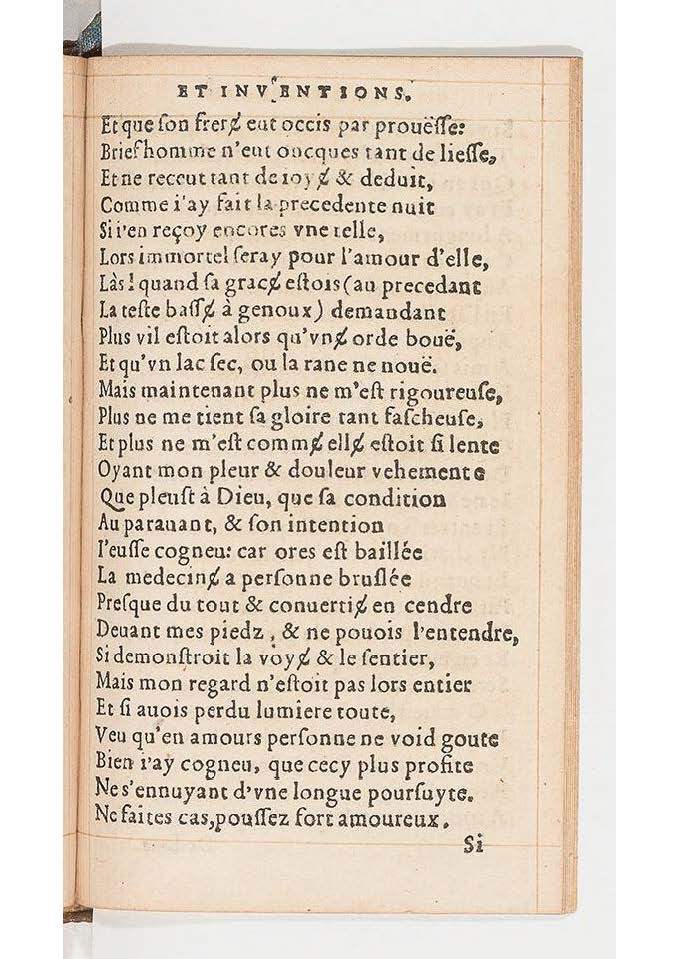 ET INVENTIONS.
Et que ſon frerɇ eut occis par prouëſſe:
Brief homme n'eut oncques tant de lieſſe,
Et ne receut tant de ioyɇ & deduit,
Comme i'ay fait la precedente nuit
Si i'en reçoy encores vne telle,
Lors immortel ſeray pour l'amour d'elle,
Làs! quand ſa gracɇ eſtois (au precedant
La teſte baſſɇ à genoux) demandant
Plus vil eſtoit alors qu'vnɇ orde bouë,
Et qu'vn lac ſec, ou la rane ne nouë.
Mais maintenant plus ne m'eſt rigoureuſe,
Plus ne me tient ſa gloire tant faſcheuſe,
Et plus ne m'eſt commɇ ellɇ eſtoit ſi lente
Oyant mon pleur & douleur vehemente
Que pleuſt à Dieu, que ſa condition
Au parauant, & ſon intention
I'euſſe cogneu: car ores eſt baillée
La medecinɇ a perſonne bruſlée
Preſque du tout & conuertiɇ en cendre
Deuant mes piedz, & ne pouois l'entendre,
Si demonſtroit la voyɇ & le ſentier,
Mais mon regard n'eſtoit pas lors entier
Et ſi auois perdu lumiere toute,
Veu qu'en amours perſonne ne void goute
Bien i'ay cogneu, que cecy plus profite
Ne s'ennuyant d'vne longue pourſuyte.
Ne faites cas, pouſſez fort amoureux.
Si